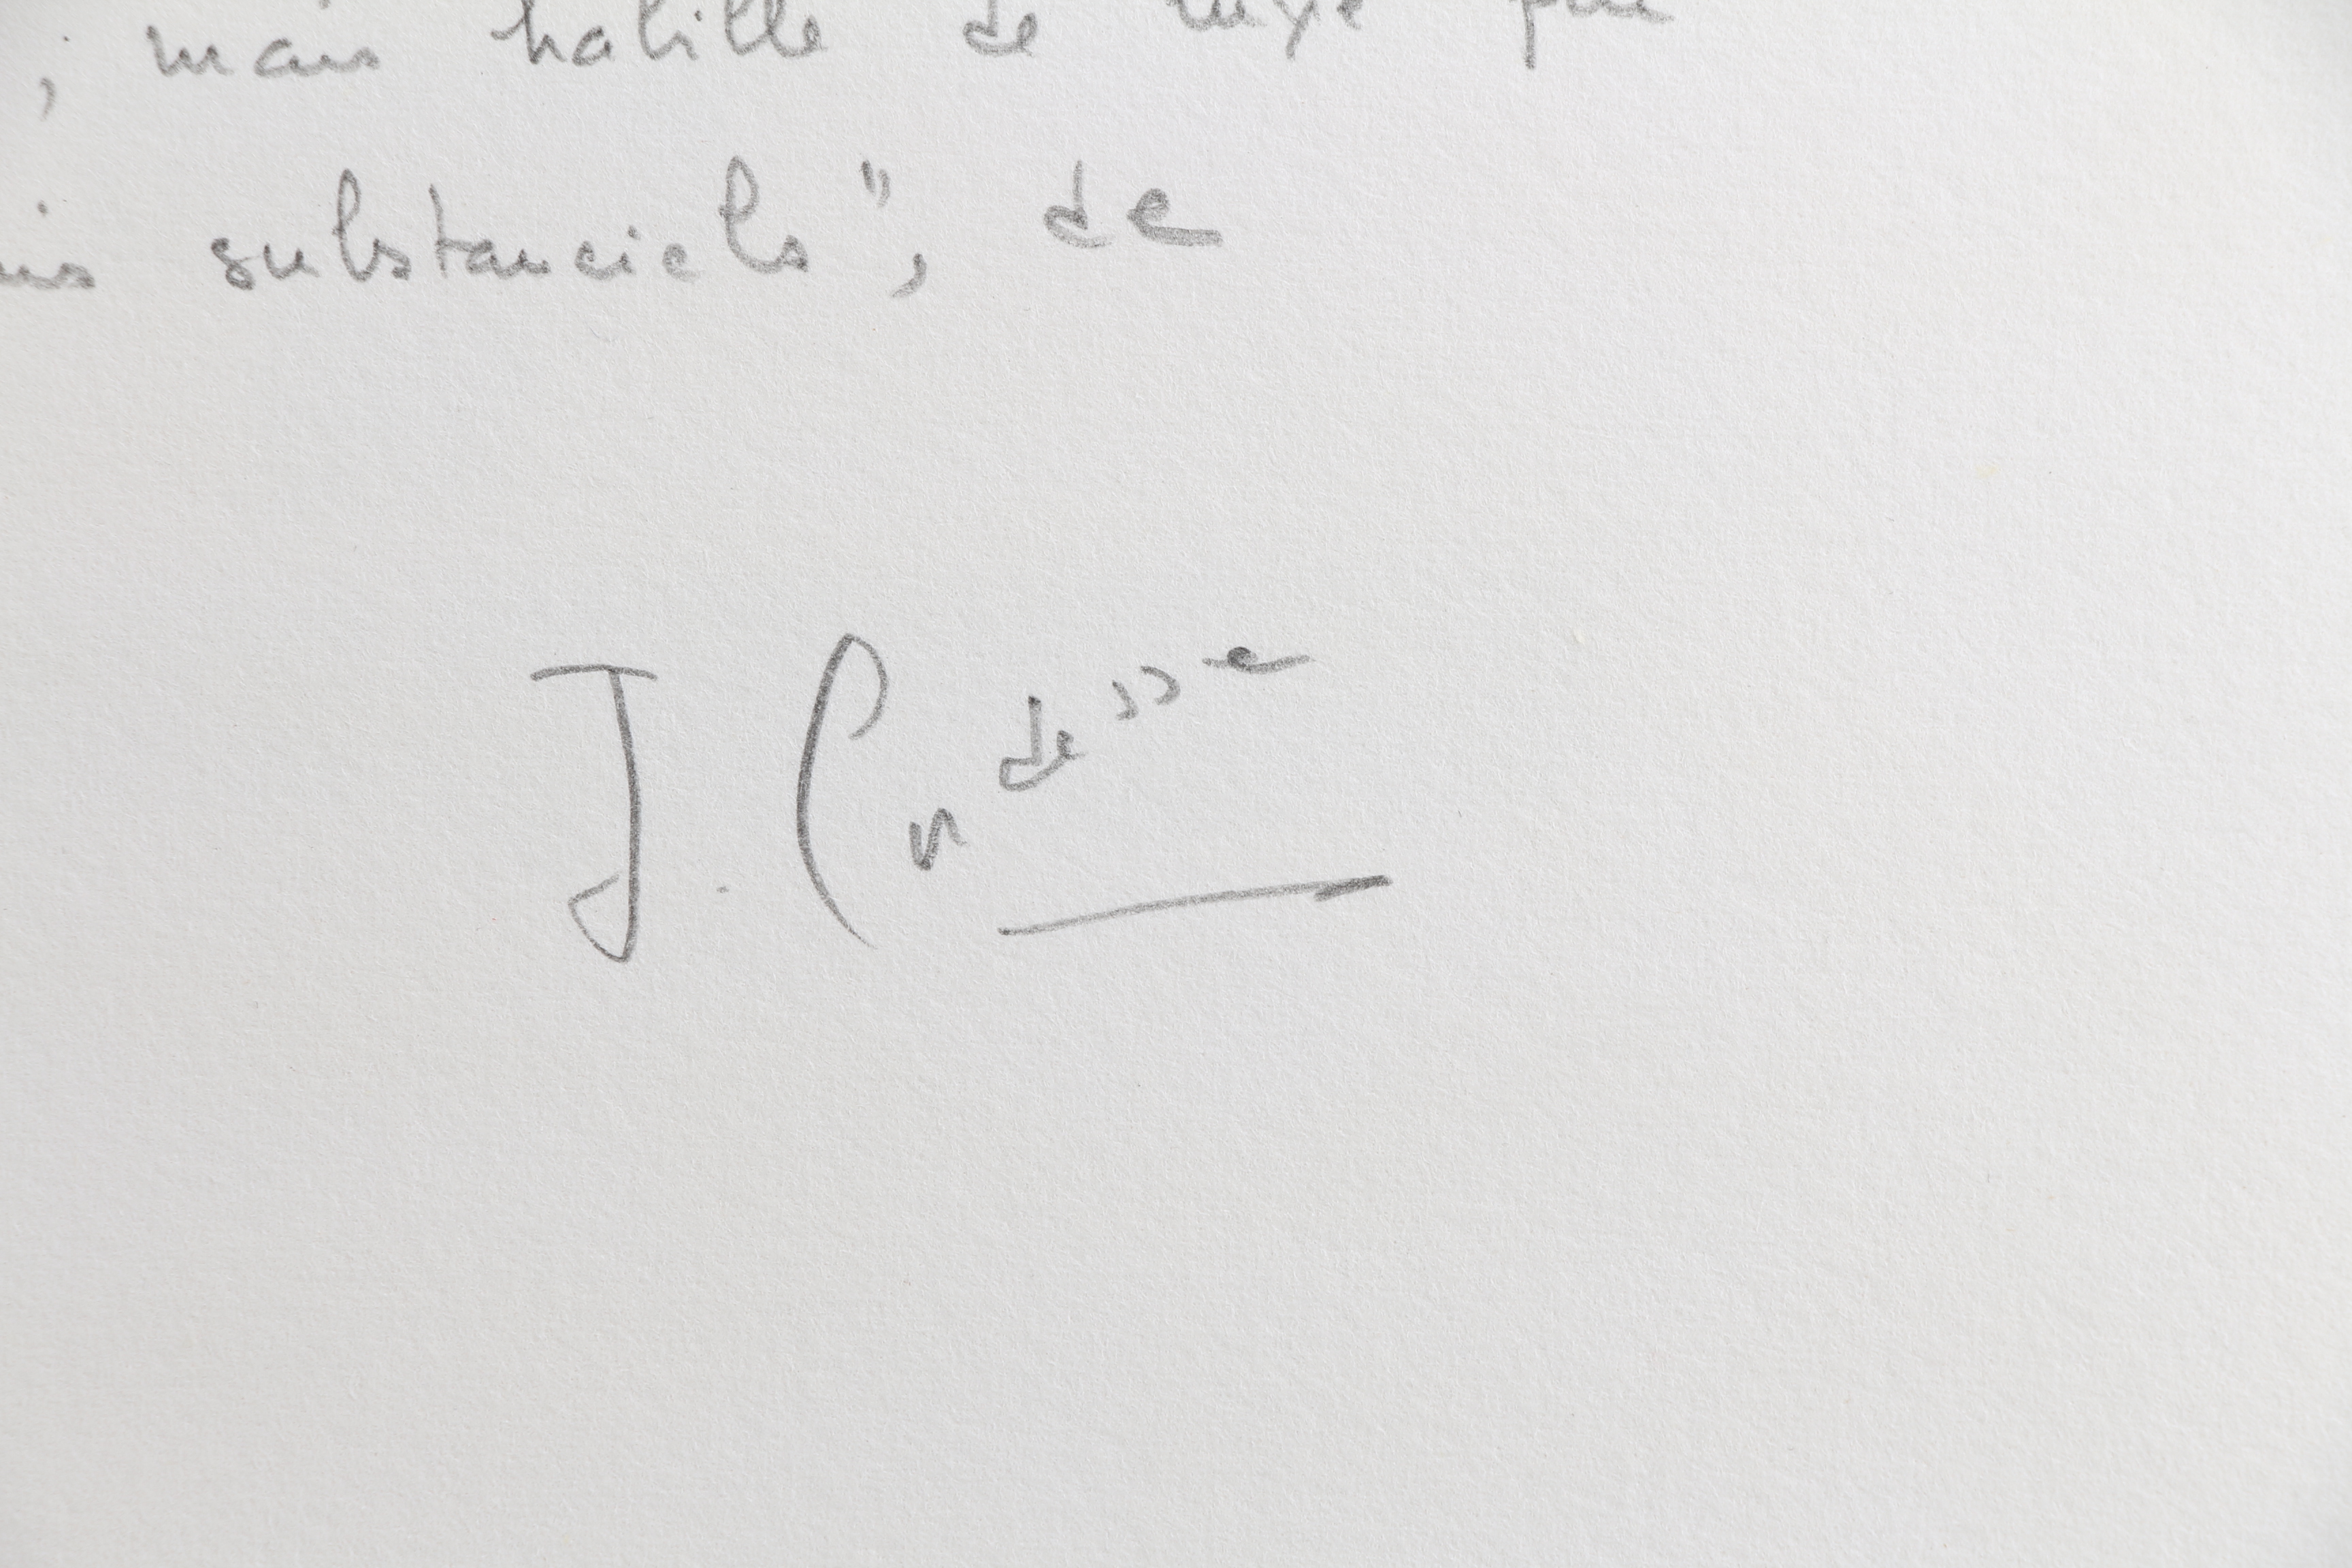 , mais habille de luxe par
substanciels", de
J. Cndesse